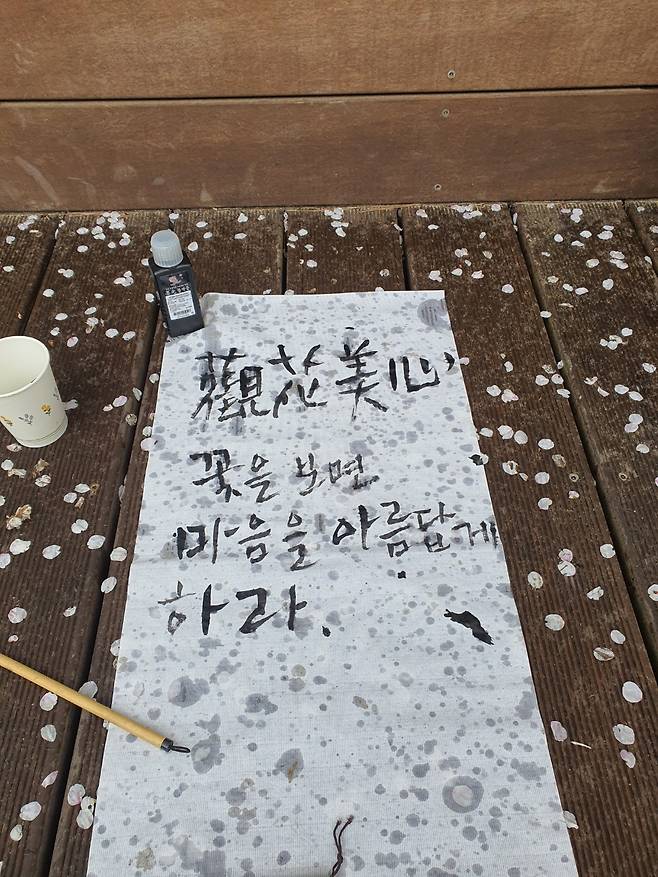 觀花美心
꽃을 보면
마음을 아름답게
하라.